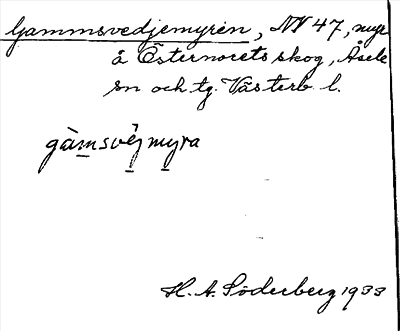 Gammsvedjemyren, NV 47, myr
å Östernorets skog, Åsele
sn och tg. Västerb l.
gàmsvę̀jmyra
H. A. Söderberg 1933